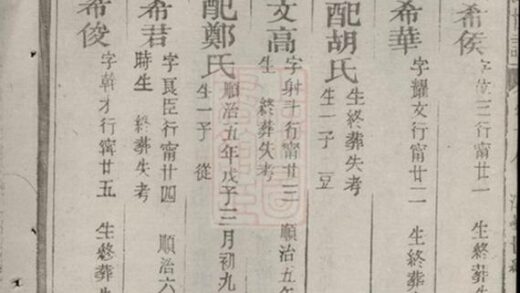 希侯
字 三行甯廿一 生終葬失
希華
字耀文行甯廿二 生終葬
配胡氏
生終葬失考
生一子 豆
文高
字射斗行甯廿三 順治五年
生 終葬失考
配鄭氏
順治五年戊子三月初九
生一子 從
希君
字良臣行甯廿四 順治六
時生 終葬失考
希俊
字幹才行甯廿五 生終葬